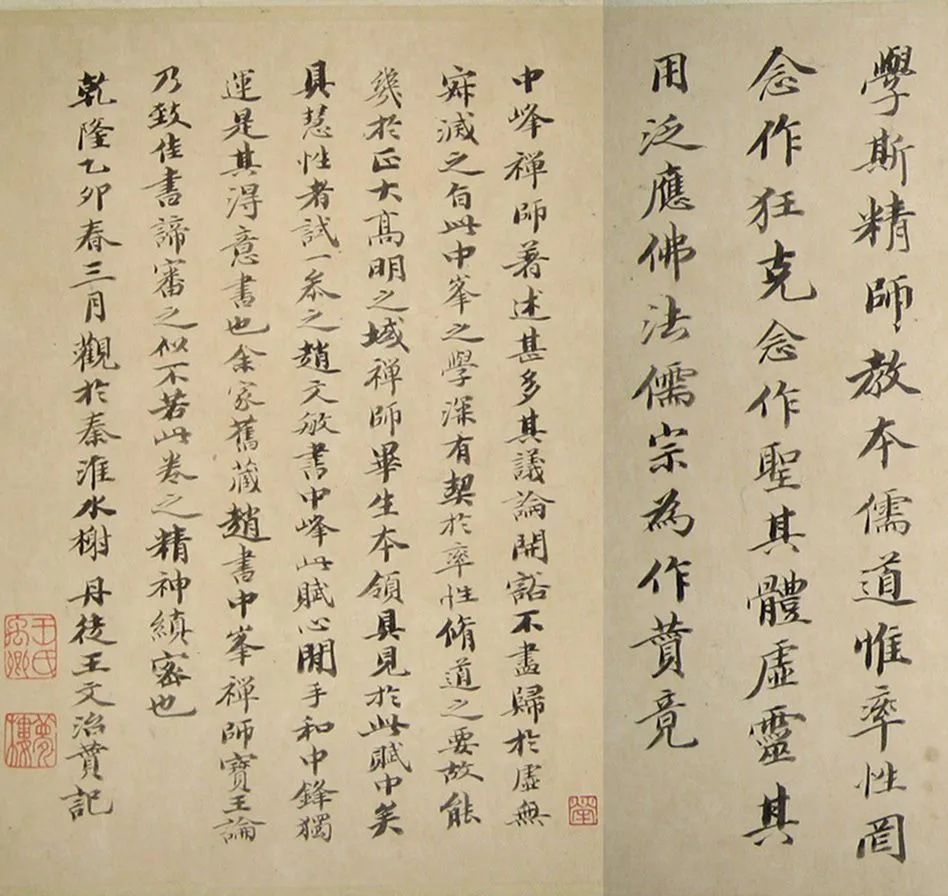 學斯精師教本儒道惟率性罔
念作狂克念作聖其體虛靈其
用泛應佛法儒宗為作贊竟
中峰禪師著述甚多其議論開豁不盡歸於虛無
寂滅之旨此中峯之學深有契於率性脩道之要故能
幾於正大高明之域禪師畢生本領具見於此賦中矣
具慧性者試一叅之趙文敏書中峰此賦心閒手和中鋒獨
運是其得意書也余家舊藏趙書中峯禪師寶王論
乃致佳書諦審之似不若此卷之精神縝密也
乾隆乙卯春三月觀於秦淮水榭丹徒王文治贊記
王氏禹卿
夢樓